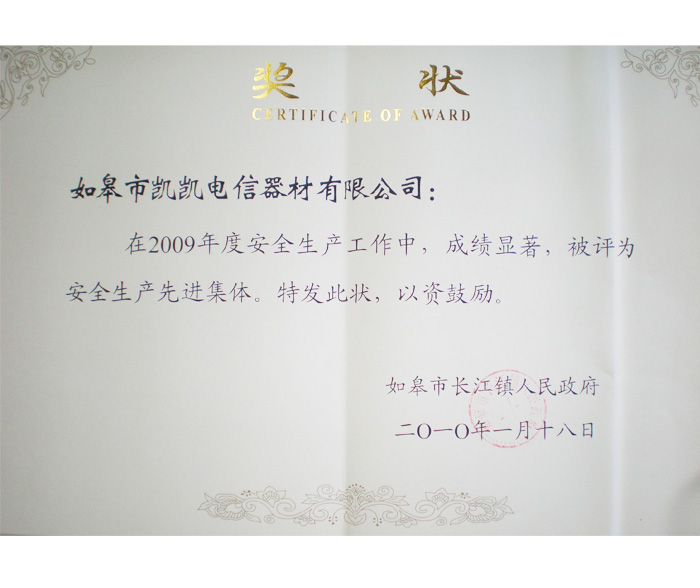 奖 状
CERTIFICATE OF AWARD
如皋市凯凯电信器材有限公司：
在2009年度安全生产工作中，成绩显著，被评为
安全生产先进集体。特发此状，以资鼓励。
如皋市长江镇人民政府
二〇一〇年一月十八日